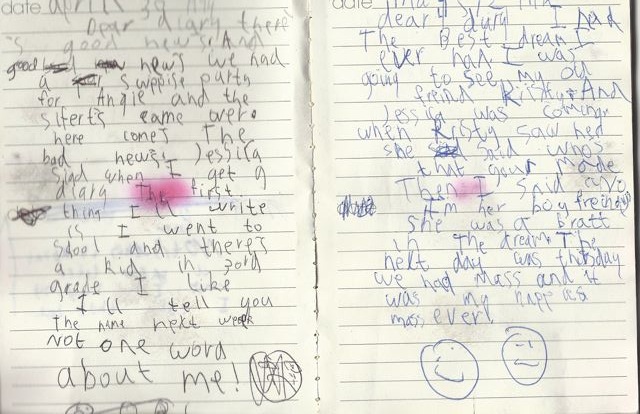 date April 30
Dear diary there
's good news. And
good news we had
a surppise party
for Angie and the
sifert's came over.
here comes The
bad news. Jessica
siad when I get a
diary The first.
thing I'll write
is I went to
scool and there's
a kid in 3ord
grade I like
I'll tell you
the name next week
Not one word
about me!
date
dear diary I had
The Best dream I
ever had. I was
going to see my old
freind Kristy. And
Jessica was coming.
when Kristy saw her
she said whos
that your
Then I said
I'm her boyfreind
she was a bratt
in the dream. The
next day was thursday
we had mass and it
was my happies
mass ever!